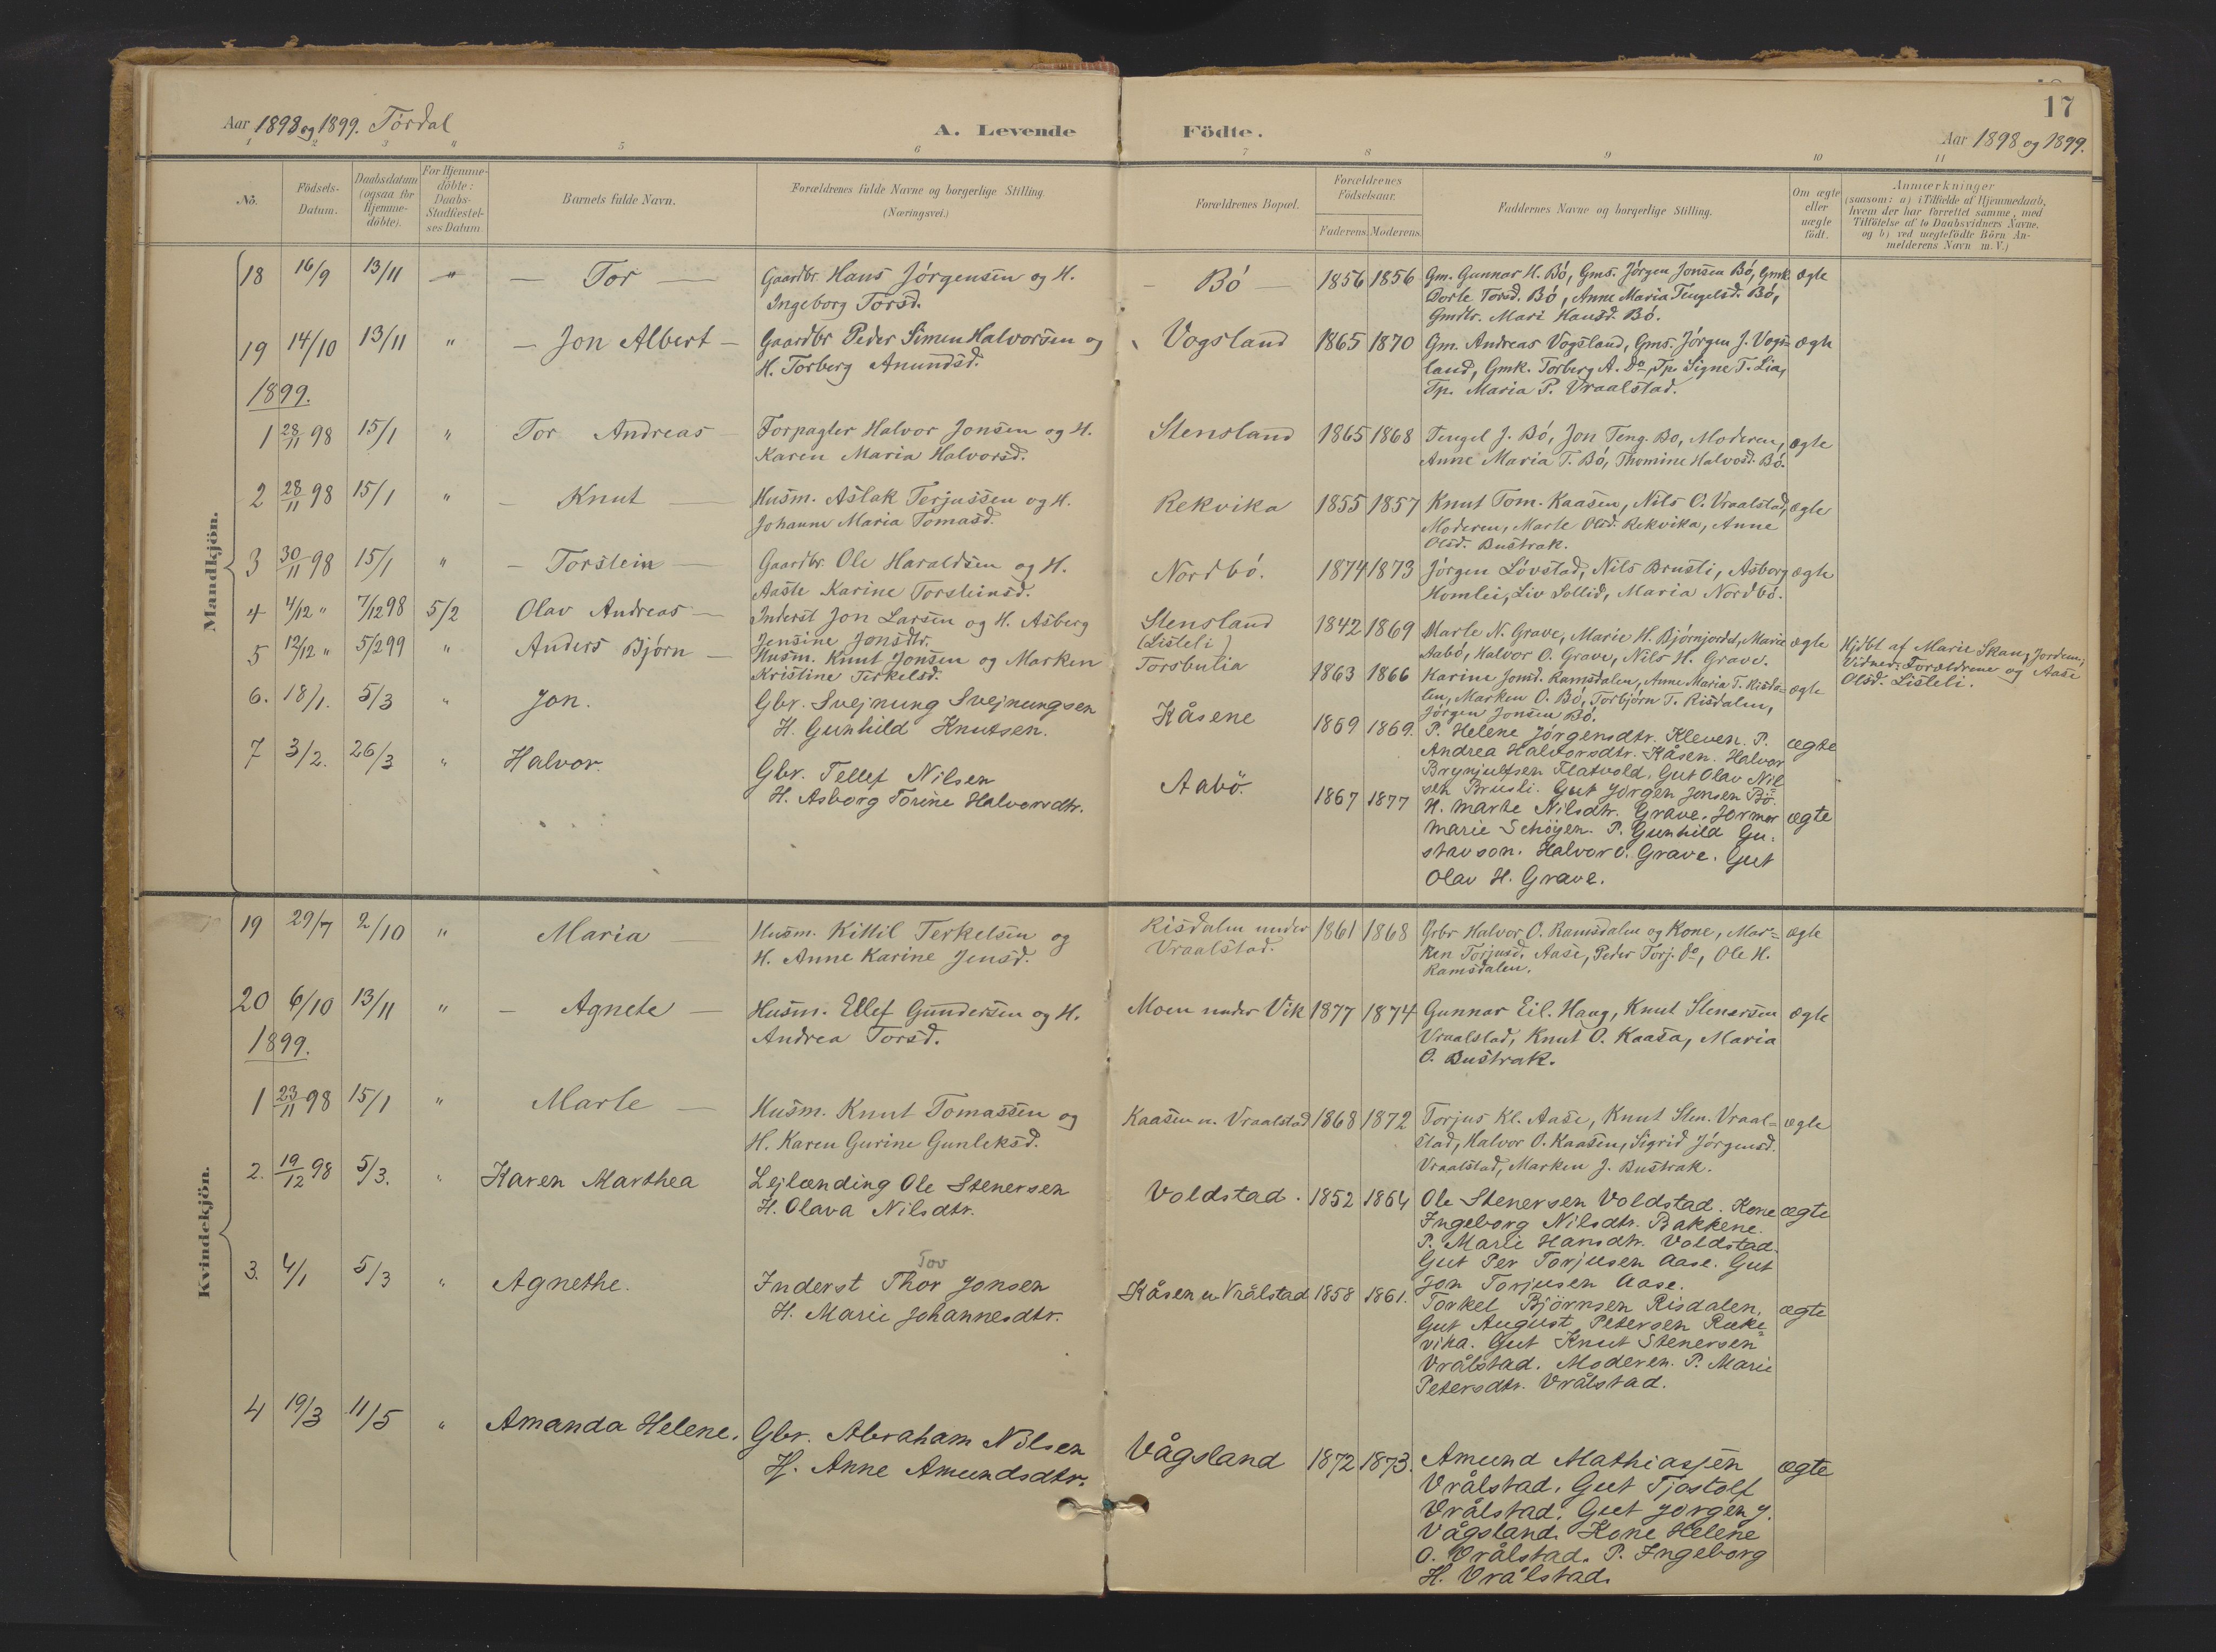 17
Aar 1898 og 1899. Tördal
A. Levende Födte.
Aar 1898 og 1899.
1 2 3 4 5 6 7 8 9 10 11
No.
Födsels-Datum.
Daabsdatum (ogsaa for Hjemme-döbte).
For Hjemme-döbte: Daabs-Stadfæstel-ses Datum
Barnets fulde Navn.
Forældrenes fulde Navne og borgerlige Stilling. (Næringsvei.)
Forældrenes Bopæl.
Forældrenes Födselsaar.
Faderens. Moderens.
Faddernes Navne og borgerlige Stilling.
Om ægte eller uægte födt.
Anmærkninger
(saasom: a) i Tilfælde af Hjemmedaab,
hvem der har forrettet samme, med
Tilföielse af to Daabsvidners Navne.
og b) ved uægtefödte Börn An-
melderens Navn m. V.)
Mandkjön.
18 16/9 13/11 " — Tor — Gaardbr. Hans Jörgensen og H. — Bö — 1856 1856 Gm. Gunnar H. Bö, Gms. Jörgen Jonsen Bö, Gmk. ægte
Ingeborg Torsd. Dorte Torsd. Bö, Anne Maria Tengelsd. Bö,
Gmdtr. Mari Hansd. Bö.
19 14/10 13/11 " — Jon Albert — Gaardbr Peder Simen Halvorsen og Vogsland 1865 1870 Gm. Andreas Vogsland, Gms. Jörgen J. Vogs= ægte
H. Torberg Anundsd. land, Gmk. Torberg A. Do, Tp. Signe T. Lia,
Tp. Maria P. Vraalstad.
1899.
1 28/11 98 15/1 " Tor Andreas — Forpagter Halvor Jonsen og H. Stensland 1865 1868 Tengel J. Bö, Jon Teng. Bö, Moderen, ægte
Karen Maria Halvorsd. Anne Maria T. Bö, Thomine Halvosd. Bö.
2 28/11 98 15/1 " — Knut — Husm. Aslak Terjussen og H. Rekvika 1855 1857 Knut Tom. Kaasen, Nils O. Vraalstad, ægte
Johanne Maria Tomasd. Moderen, Marte Olsd. Rekvika, Anne
Olsd. Bustrak.
3 30/11 98 15/1 " — Torstein — Gaardbr. Ole Haraldsen og H. Nordbö. 1874 1873 Jörgen Lövstad, Nils Brusli, Asborg ægte
Aaste Karine Torsteinsd. Homlei, Liv Sollid, Maria Nordbö.
4 4/12 " 7/12 98 5/2 Olav Andreas — Inderst Jon Larsen og H. Asberg Stensland 1842 1869 Marte N. Grave, Marie H. Bjørnjordet, Marie ægte Hjdbt af Marie Skau, Jordem;
Jensine Jonsdtr. (Listeli) Aabö, Halvor O. Grave, Nils H. Grave. Vidner: Forældrene og Aase
Olsd. Listeli.
5 12/12 " 5/2 99 " Anders Bjørn — Husm. Knut Jonsen og Marken Torsbulia 1863 1866 Karine Jomd. Ramsdalen, Anne Maria T. Risda= ægte
Kristine Terkelsd. len, Marken O. Bö, Torbjörn T. Risdalen,
Jörgen Jonsen Bö.
6. 18/1. 5/3 " Jon. Gbr. Svejnung Svejnungsen Kåsene 1869 1869. P. Helene Jörgensdtr. Kleven. P. ægte
H. Gunhild Knutsen. Andrea Halvorsdtr. Kåsen. Halvor
Brynjulfsen Flatvold. Gut Olav Nil
sen Brusli. Gut Jörgen Jonsen Bö.
7 3/2. 26/3 " Halvor. Gbr. Tellef Nilsen Aabö. 1867 1877 H. Marte Nilsdtr. Grave. Jormor ægte
H. Asborg Torine Halvorsdtr. Marie Schöyen. P. Gunhild Gu=
stavson. Halvor O. Grave. Gut
Olav H. Grave.
Kvindekjön.
19 29/7 2/10 " Maria — Husm. Kittil Terkelsen og Risdalen under 1861 1868 Grbr Halvor O. Ramsdalen og Kone, Mar= ægte
H. Anne Karine Jensd. Vraalstad. ken Torjusd. Aase, Peder Torj. Do, Ole H.
Ramsdalen.
20 6/10 13/11 " — Agnete — Husm. Ellef Gundersen og H. Moen under Vik 1877 1874 Gunnar Eil. Haug, Knut Stenersen ægte
Andrea Torsd. Vraalstad, Knut O. Kaasa, Maria
O. Bustrak.
1899.
1 23/11 98 15/1 " Marte — Husm. Knut Tomassen og Kaasen u. Vraalstad 1868 1872 Torjus Kl. Aase, Knut Sten. Vraal= ægte
H. Karen Gurine Gunleksd. stad, Halvor O. Kaasen, Sigrid Jörgensd.
Vraalstad, Marken J. Bustrak.
2. 19/12 98 5/3. " Karen Marthea Lejlænding Ole Stenersen Voldstad. 1852 1864 Ole Stenersen Voldstad. Kone ægte
H. Olava Nilsdtr. Ingeborg Nilsdtr. Bakkene.
P. Marie Hansdtr. Voldstad.
Gut Per Torjusen Aase. Gut
Jon Torjusen Aase.
Tov
3. 4/1 5/3 " Agnethe. Inderst Thor Jonsen Kåsen u. Vrålstad 1858 1861. Torkel Björnsen Risdalen, ægte
H. Marie Johannesdtr. Gut August Petersen Ræke=
vika. Gut Knut Stenersen
Vrålstad. Moderen. P. Marie
Petersdtr. Vrålstad.
4 19/3 11/5 " Amanda Helene. Gbr. Abraham Nilsen Vågsland 1872 1873. Amund Mathiassen ægte
H. Anne Amundsdtr. Vrålstad. Gut Tjostolf
Vrålstad. Gut Jörgen J.
Vågsland. Kone Helene
O. Vrålstad. P. Ingeborg
H. Vrålstad.